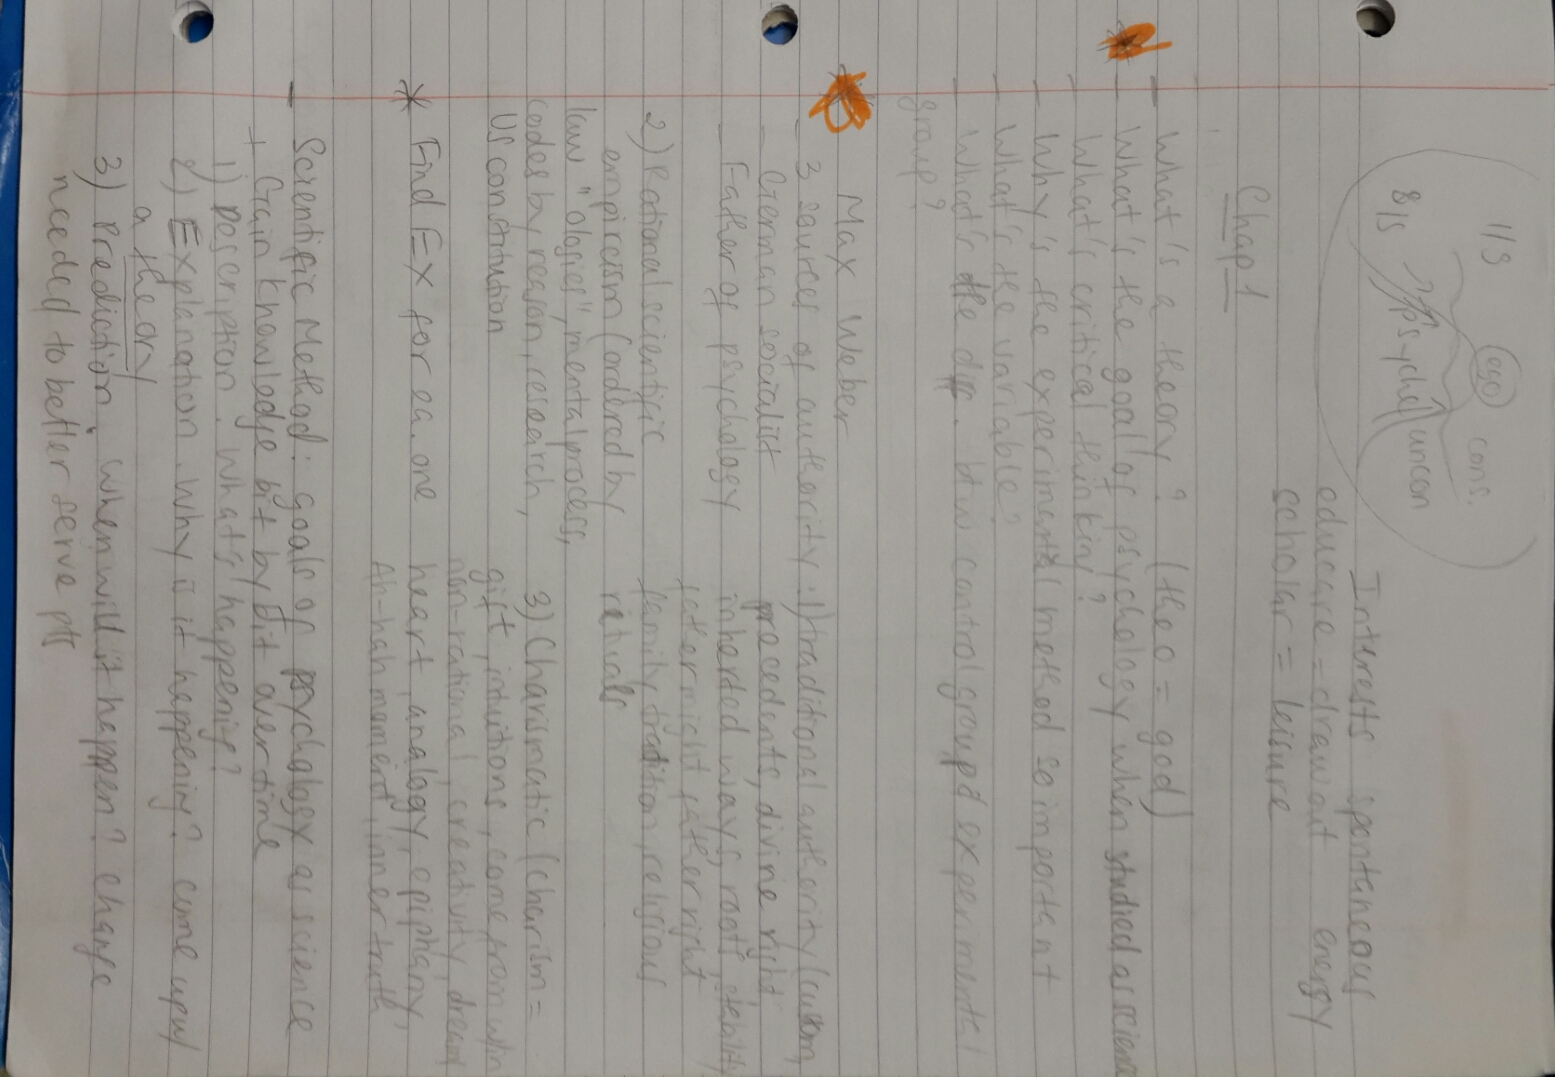 1/3
8/5
ego
cons.
psyche
uncon
Interests spontaneous
educare = drawout energy
scholar = leisure
Chap 1
- What's a theory? (theo = god)
- What's the goal of psychology when studied as science
- What's critical thinking?
- Why's the experimental method so important
- What's the variable?
- What's the dif. btw control group & experimental
group?
Max Weber
- 3 sources of authority. 1) traditional authority (custom,
- German socialist precedents, divine right
- Father of psychology inherited ways, root, stability
father might father right
2) Rational scientific family tradition, religious
empiricism (ordered by rituals
law "ologies", mental process,
codes by reason, research, 3) Charismatic (charism =
US constitution gift, intuitions, come from w/in
non-rational, creativity, dream
* Find EX for ea. one heart, analogy, epiphany,
Ah-hah moment, inner truth
- Scientific Method: goals of psychology as science
+ Gain knowledge bit by bit over time
1) Description. What's happening?
2) Explanation. Why is it happening? come up w/
a theory
3) Prediction. When will it happen? Change
needed to better serve pts